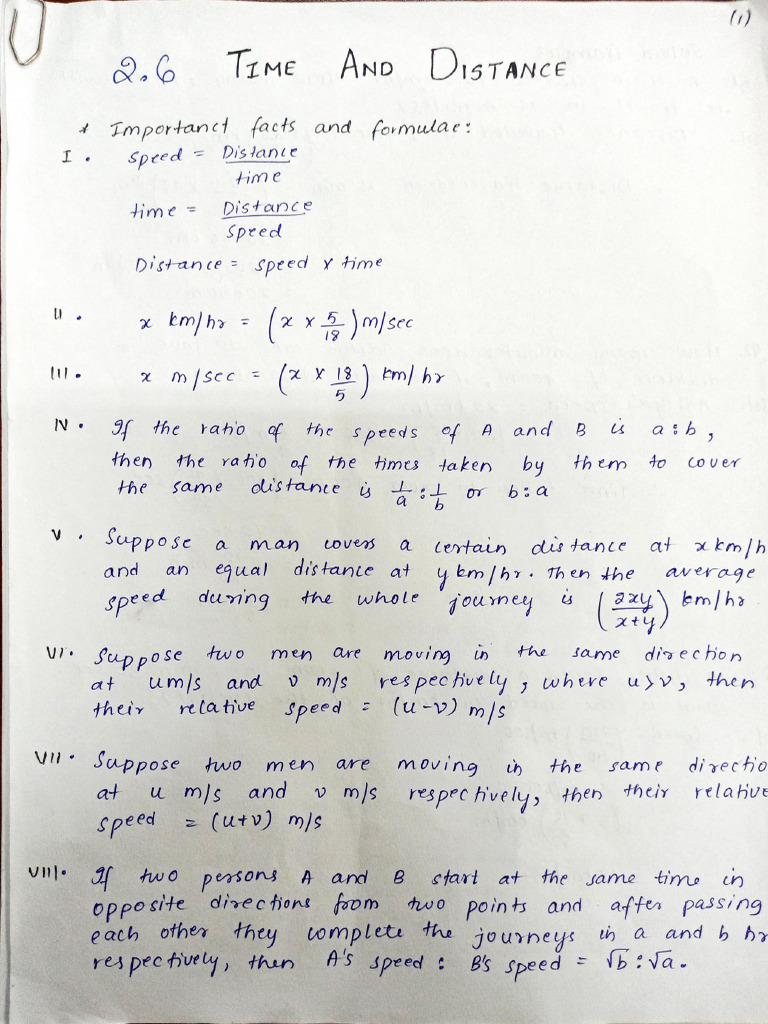 (1)
2.6 TIME AND DISTANCE
* Importanct facts and formulae:
I. speed = Distance / time
time = Distance / speed
Distance = speed x time
II. x km/hr = (x x 5/18) m/sec
III. x m/sec = (x x 18/5) km/hr
IV. If the ratio of the speeds of A and B is a:b,
then the ratio of the times taken by them to cover
the same distance is 1/a : 1/b or b:a
V. Suppose a man covers a certain distance at x km/h
and an equal distance at y km/hr. Then the average
speed during the whole journey is (2xy / x+y) km/hr
VI. Suppose two men are moving in the same direction
at u m/s and v m/s respectively, where u>v, then
their relative speed = (u-v) m/s
VII. Suppose two men are moving in the same directio
at u m/s and v m/s respectively, then their relative
speed = (u+v) m/s
VIII. If two persons A and B start at the same time in
opposite directions from two points and after passing
each other they complete the journeys in a and b hr
respectively, then A's speed : B's speed = √b : √a.